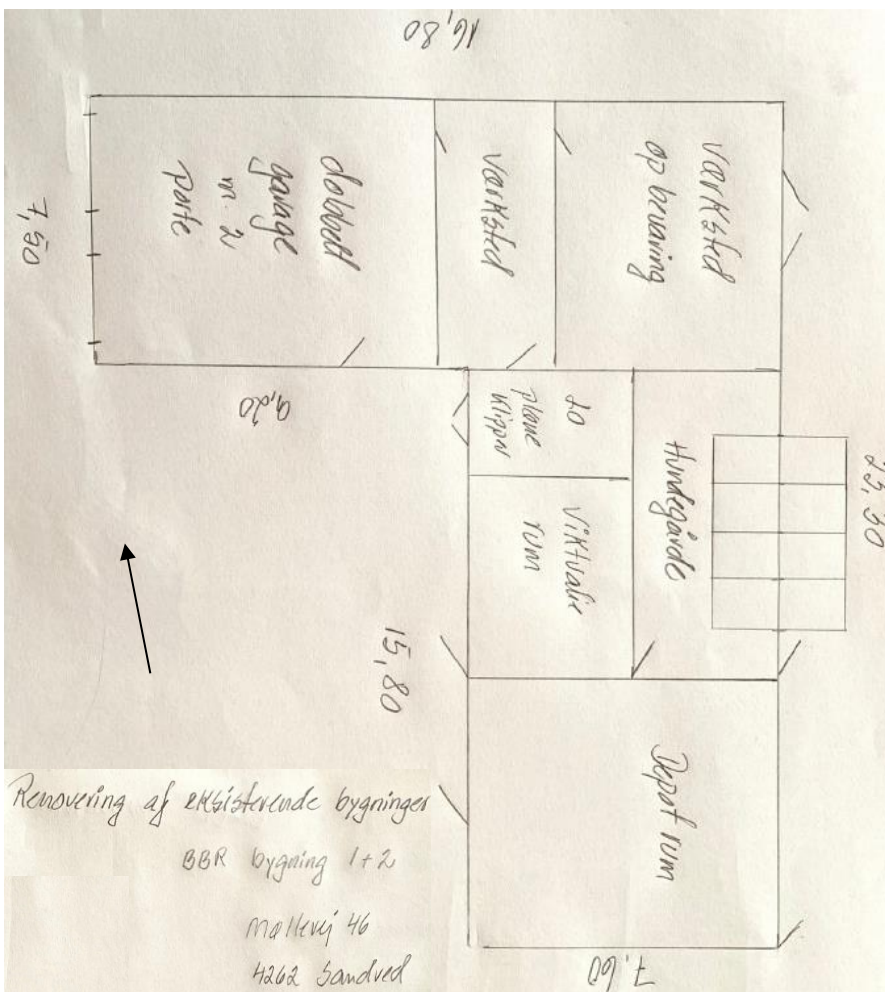 16,80
dobbelt
garage
m. 2
porte
værksted
værksted
opbevaring
7,50
9,20
20
plane
klipper
viktualie
rum
Hundegårde
23,30
15,80
Depot rum
7,60
Renovering af eksisterende bygninger
BBR bygning 1+2
Møllevej 46
4262 Sandved